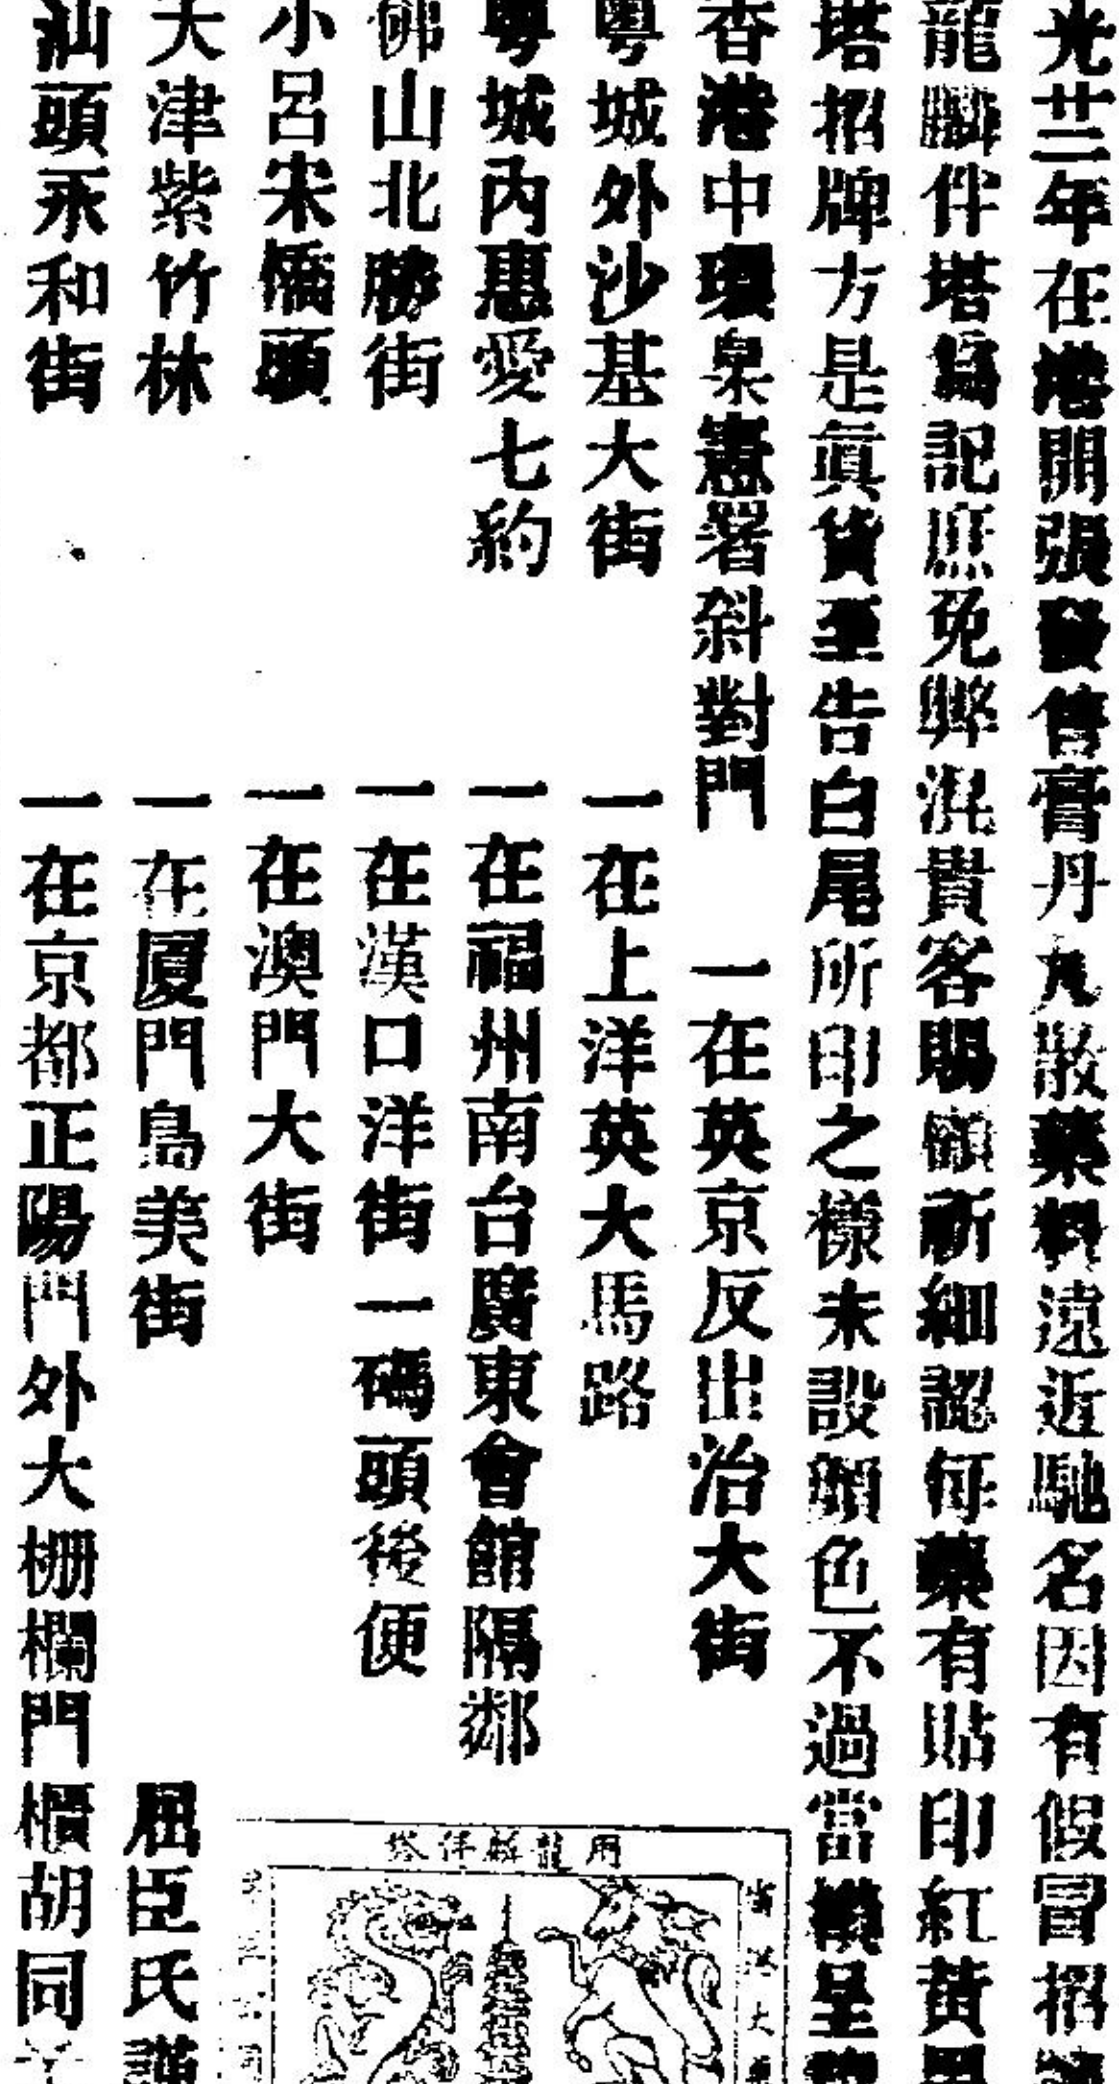 光廿二年在港開張發售膏丹丸散藥料遠近馳名因有假冒招
龍麟伴塔爲記庶免弊混貴客賜顧祈細認每藥有貼印紅黃
塔招牌方是眞貨至告白尾所印之樣未設顏色不過當模呈
香港中環臬憲署斜對門 一在英京反出治大街
粵城外沙基大街 一在上洋英大馬路
粵城內惠愛七約 一在福州南台廣東會館隔鄰
佛山北勝街 一在漢口洋街一碼頭後便
小呂宋橋頭 一在澳門大街
大津紫竹林 一在厦門島美街 屈臣氏謹
汕頭永和街 一在京都正陽門外大柵欄門櫃胡同
用龍麟伴塔